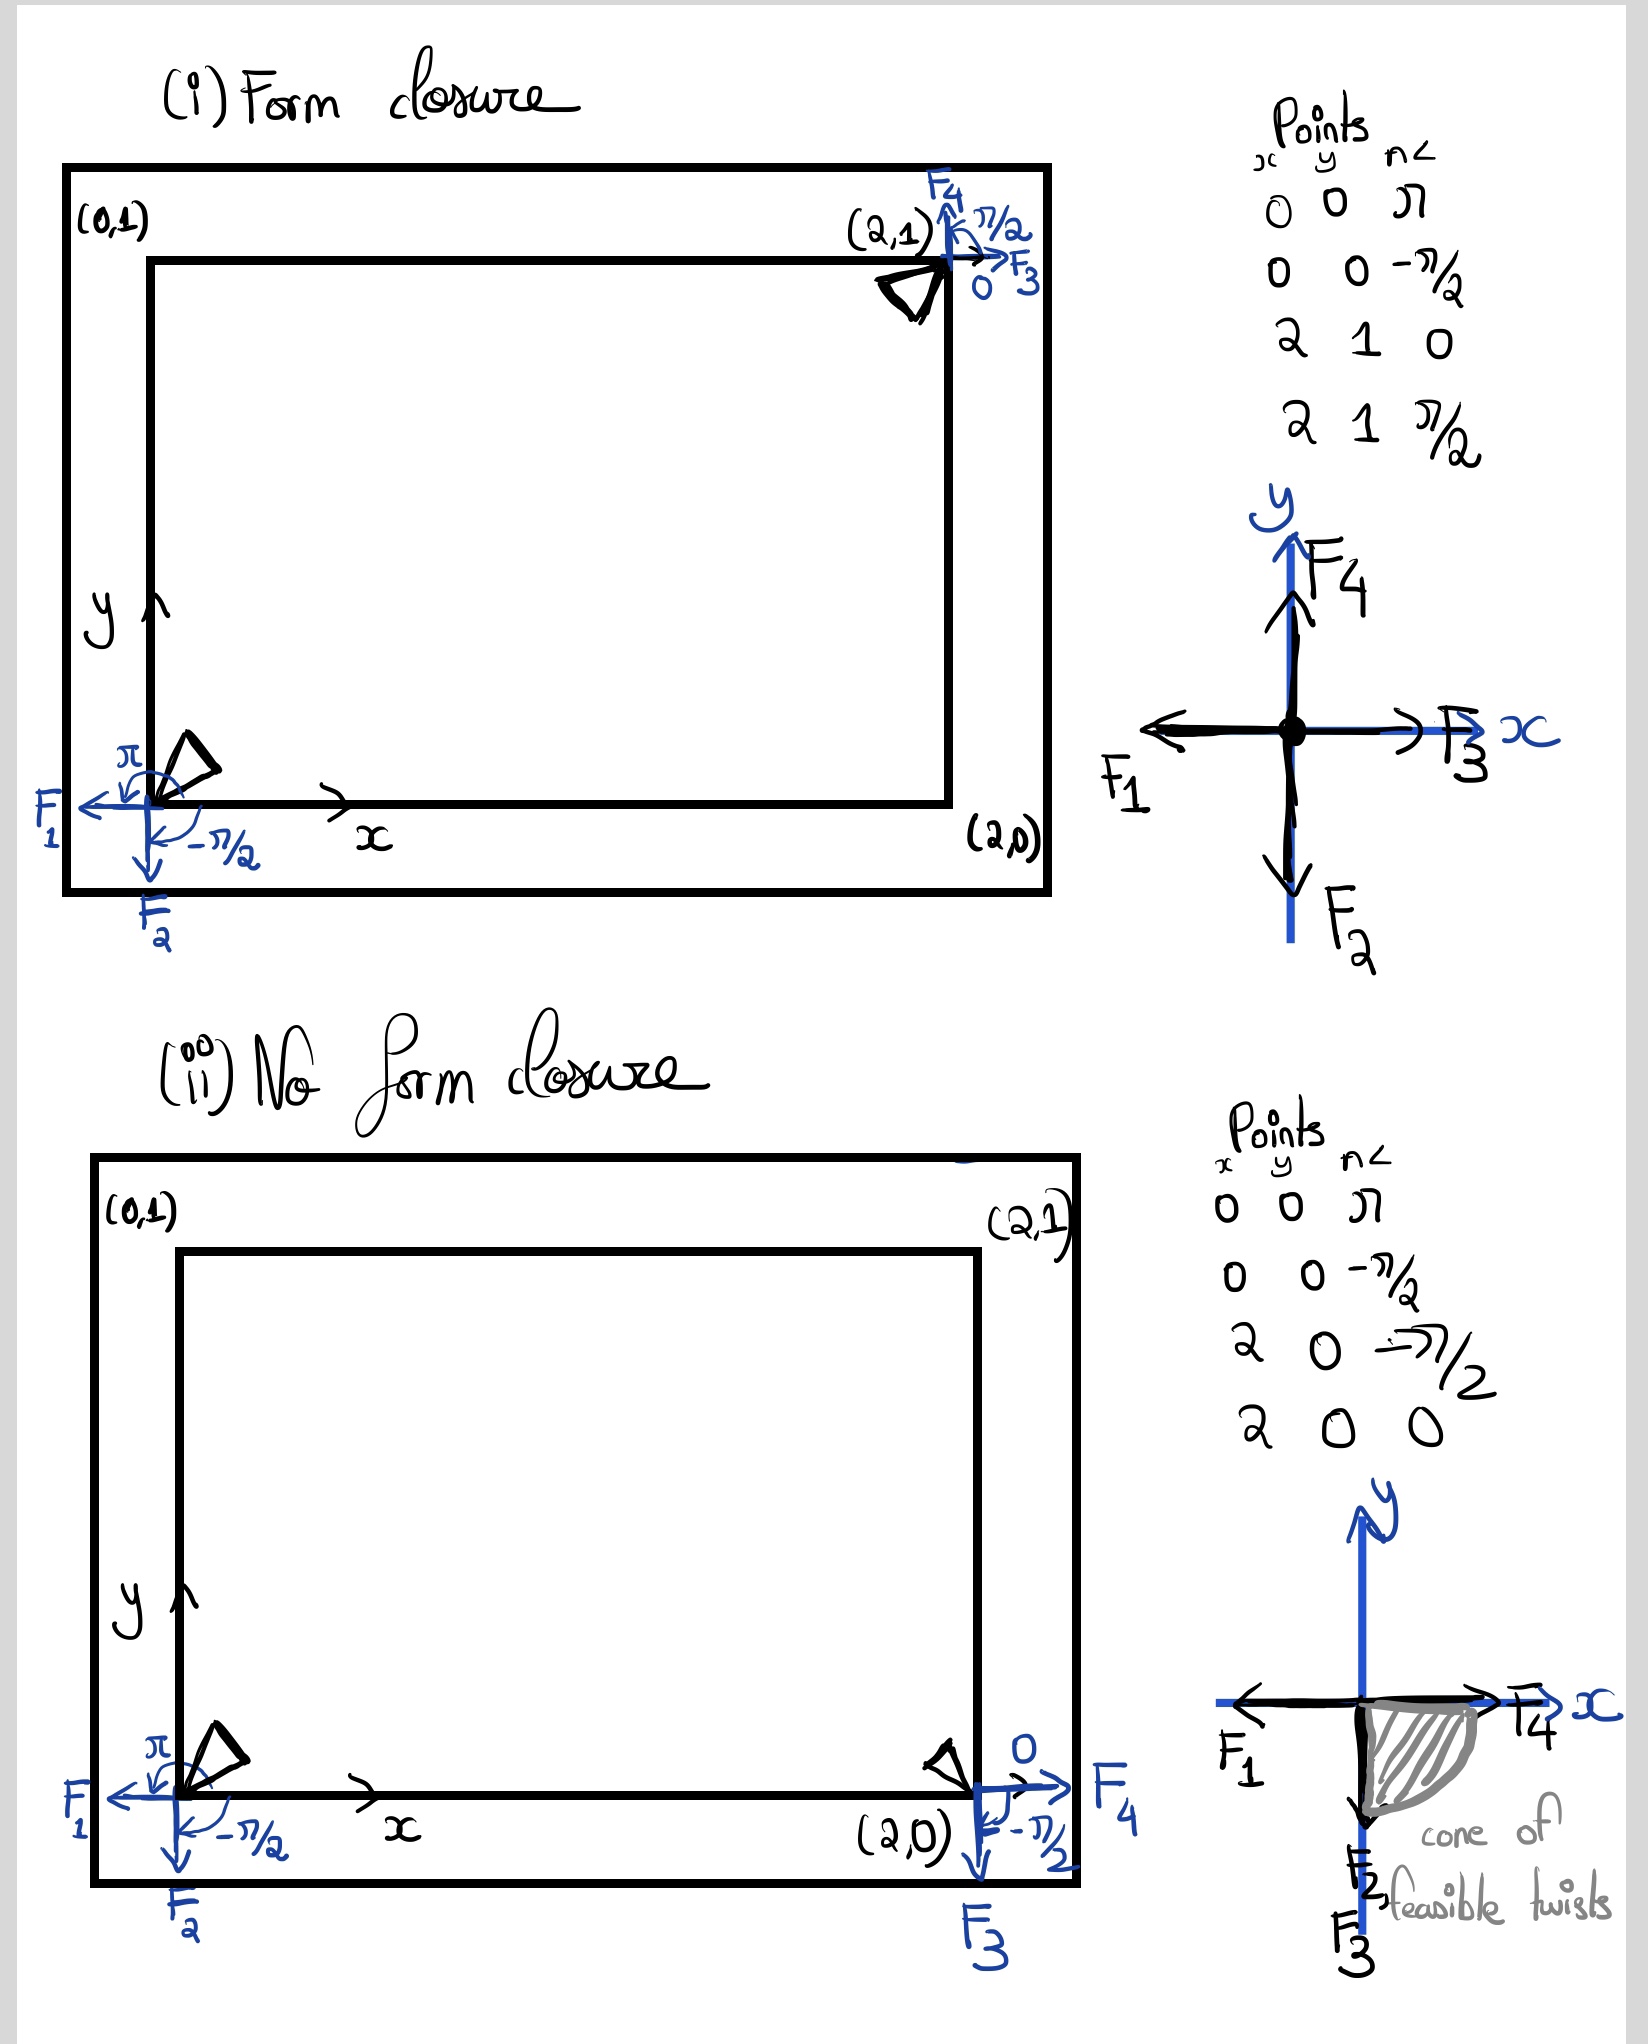 (i) Form closure
(0,1)
(2,1)
F4
π/2
F3
0
y
π
F1
-π/2
x
(2,0)
F2
Points
x y n<
0 0 π
0 0 -π/2
2 1 0
2 1 π/2
y
F4
F3
x
F1
F2
(ii) No form closure
(0,1)
(2,1)
y
π
F1
-π/2
x
(2,0)
0
F4
-π/2
F2
F3
Points
x y n<
0 0 π
0 0 -π/2
2 0 -π/2
2 0 0
y
F4
x
F1
F2,
F3
cone of
feasible twists